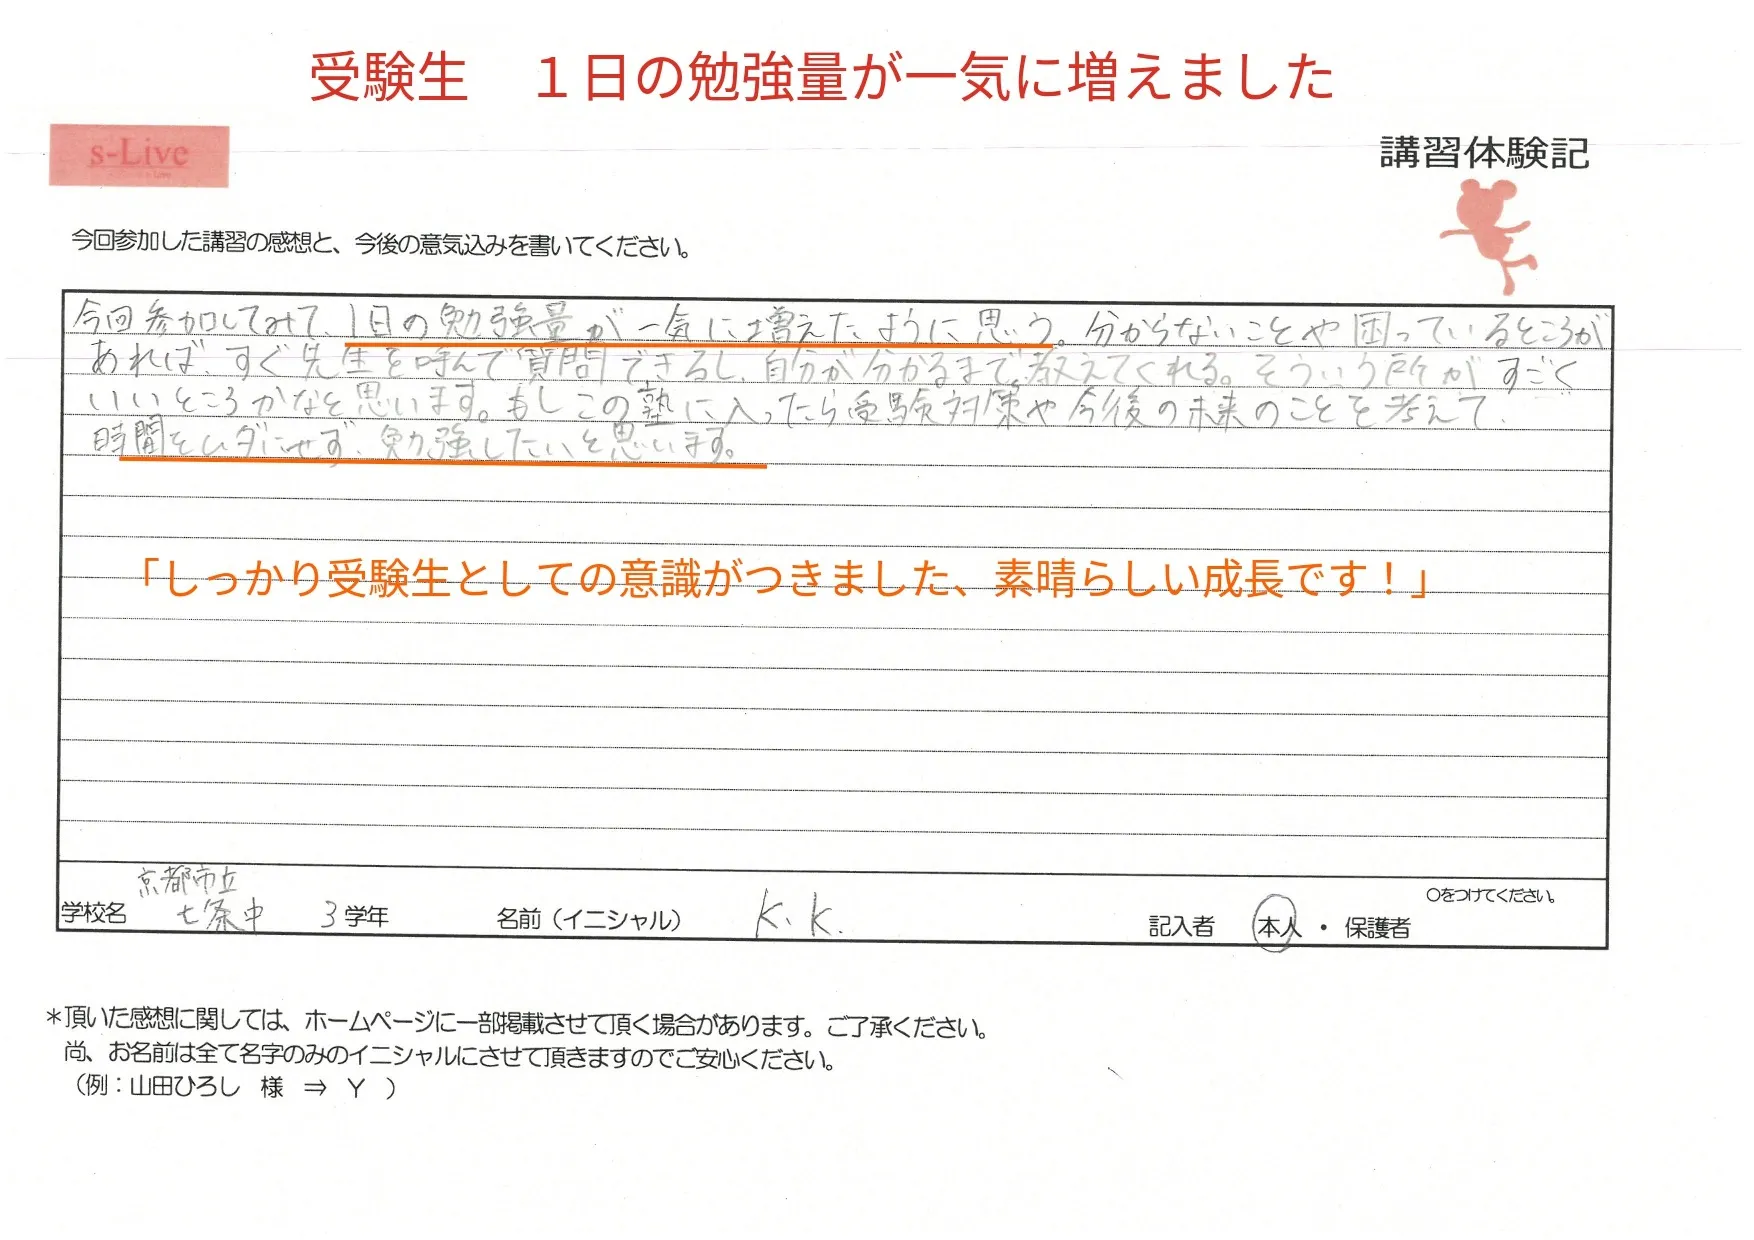 受験生　１日の勉強量が一気に増えました
s-Live
講習体験記
今回参加した講習の感想と、今後の意気込みを書いてください。
今回参加してみて、1日の勉強量が一気に増えたように思う。分からないことや困っているところが
あれば、すぐ先生を呼んで質問できるし、自分が分かるまで教えてくれる。そういう所がすごく
いいところかなと思います。もしこの塾に入ったら受験対策や今後の未来のことを考えて、
時間をムダにせず、勉強したいと思います。
「しっかり受験生としての意識がつきました、素晴らしい成長です！」
○をつけてください。
京都市立
学校名 七条中 3学年 名前（イニシャル） K.K. 記入者 本人・保護者
＊頂いた感想に関しては、ホームページに一部掲載させて頂く場合があります。ご了承ください。
尚、お名前は全て名字のみのイニシャルにさせて頂きますのでご安心ください。
（例：山田ひろし 様 ⇒ Y ）